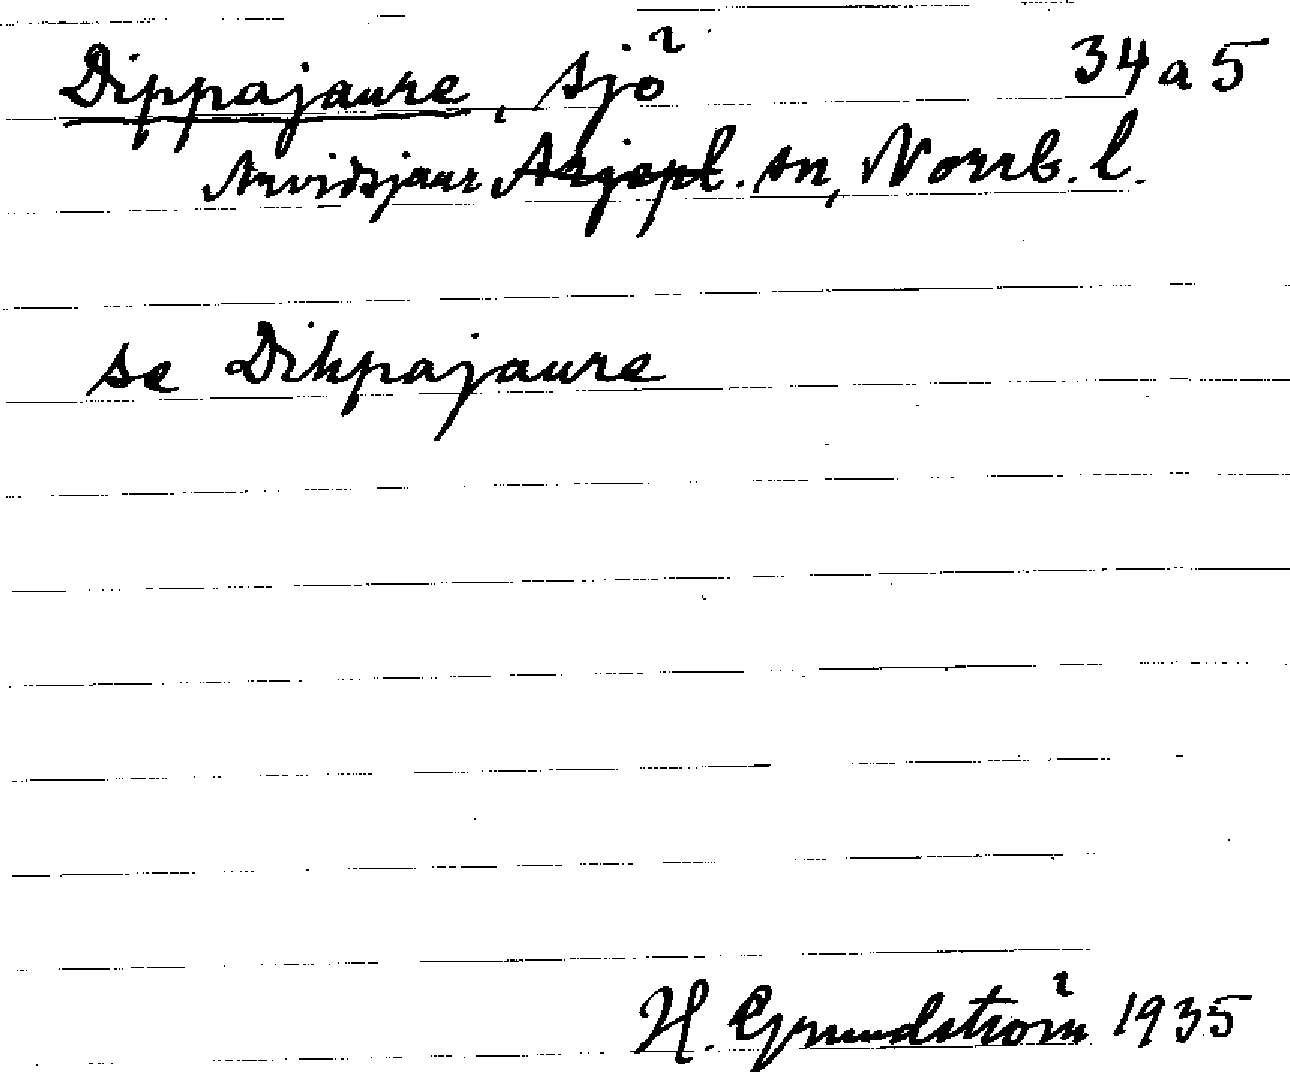 Dippajaure, sjö 34 a 5
Arvidsjaur Arjepl. sn, Norrb. l.
se Dihpajaure
H. Grundström 1935